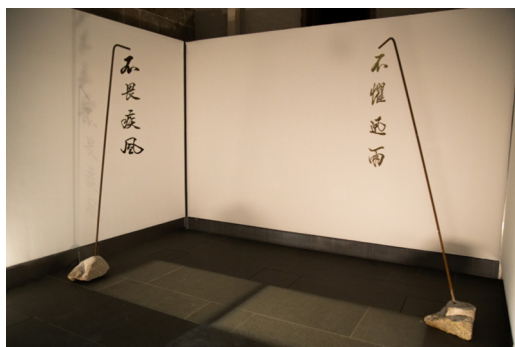 不畏疾風
不懼迅雨